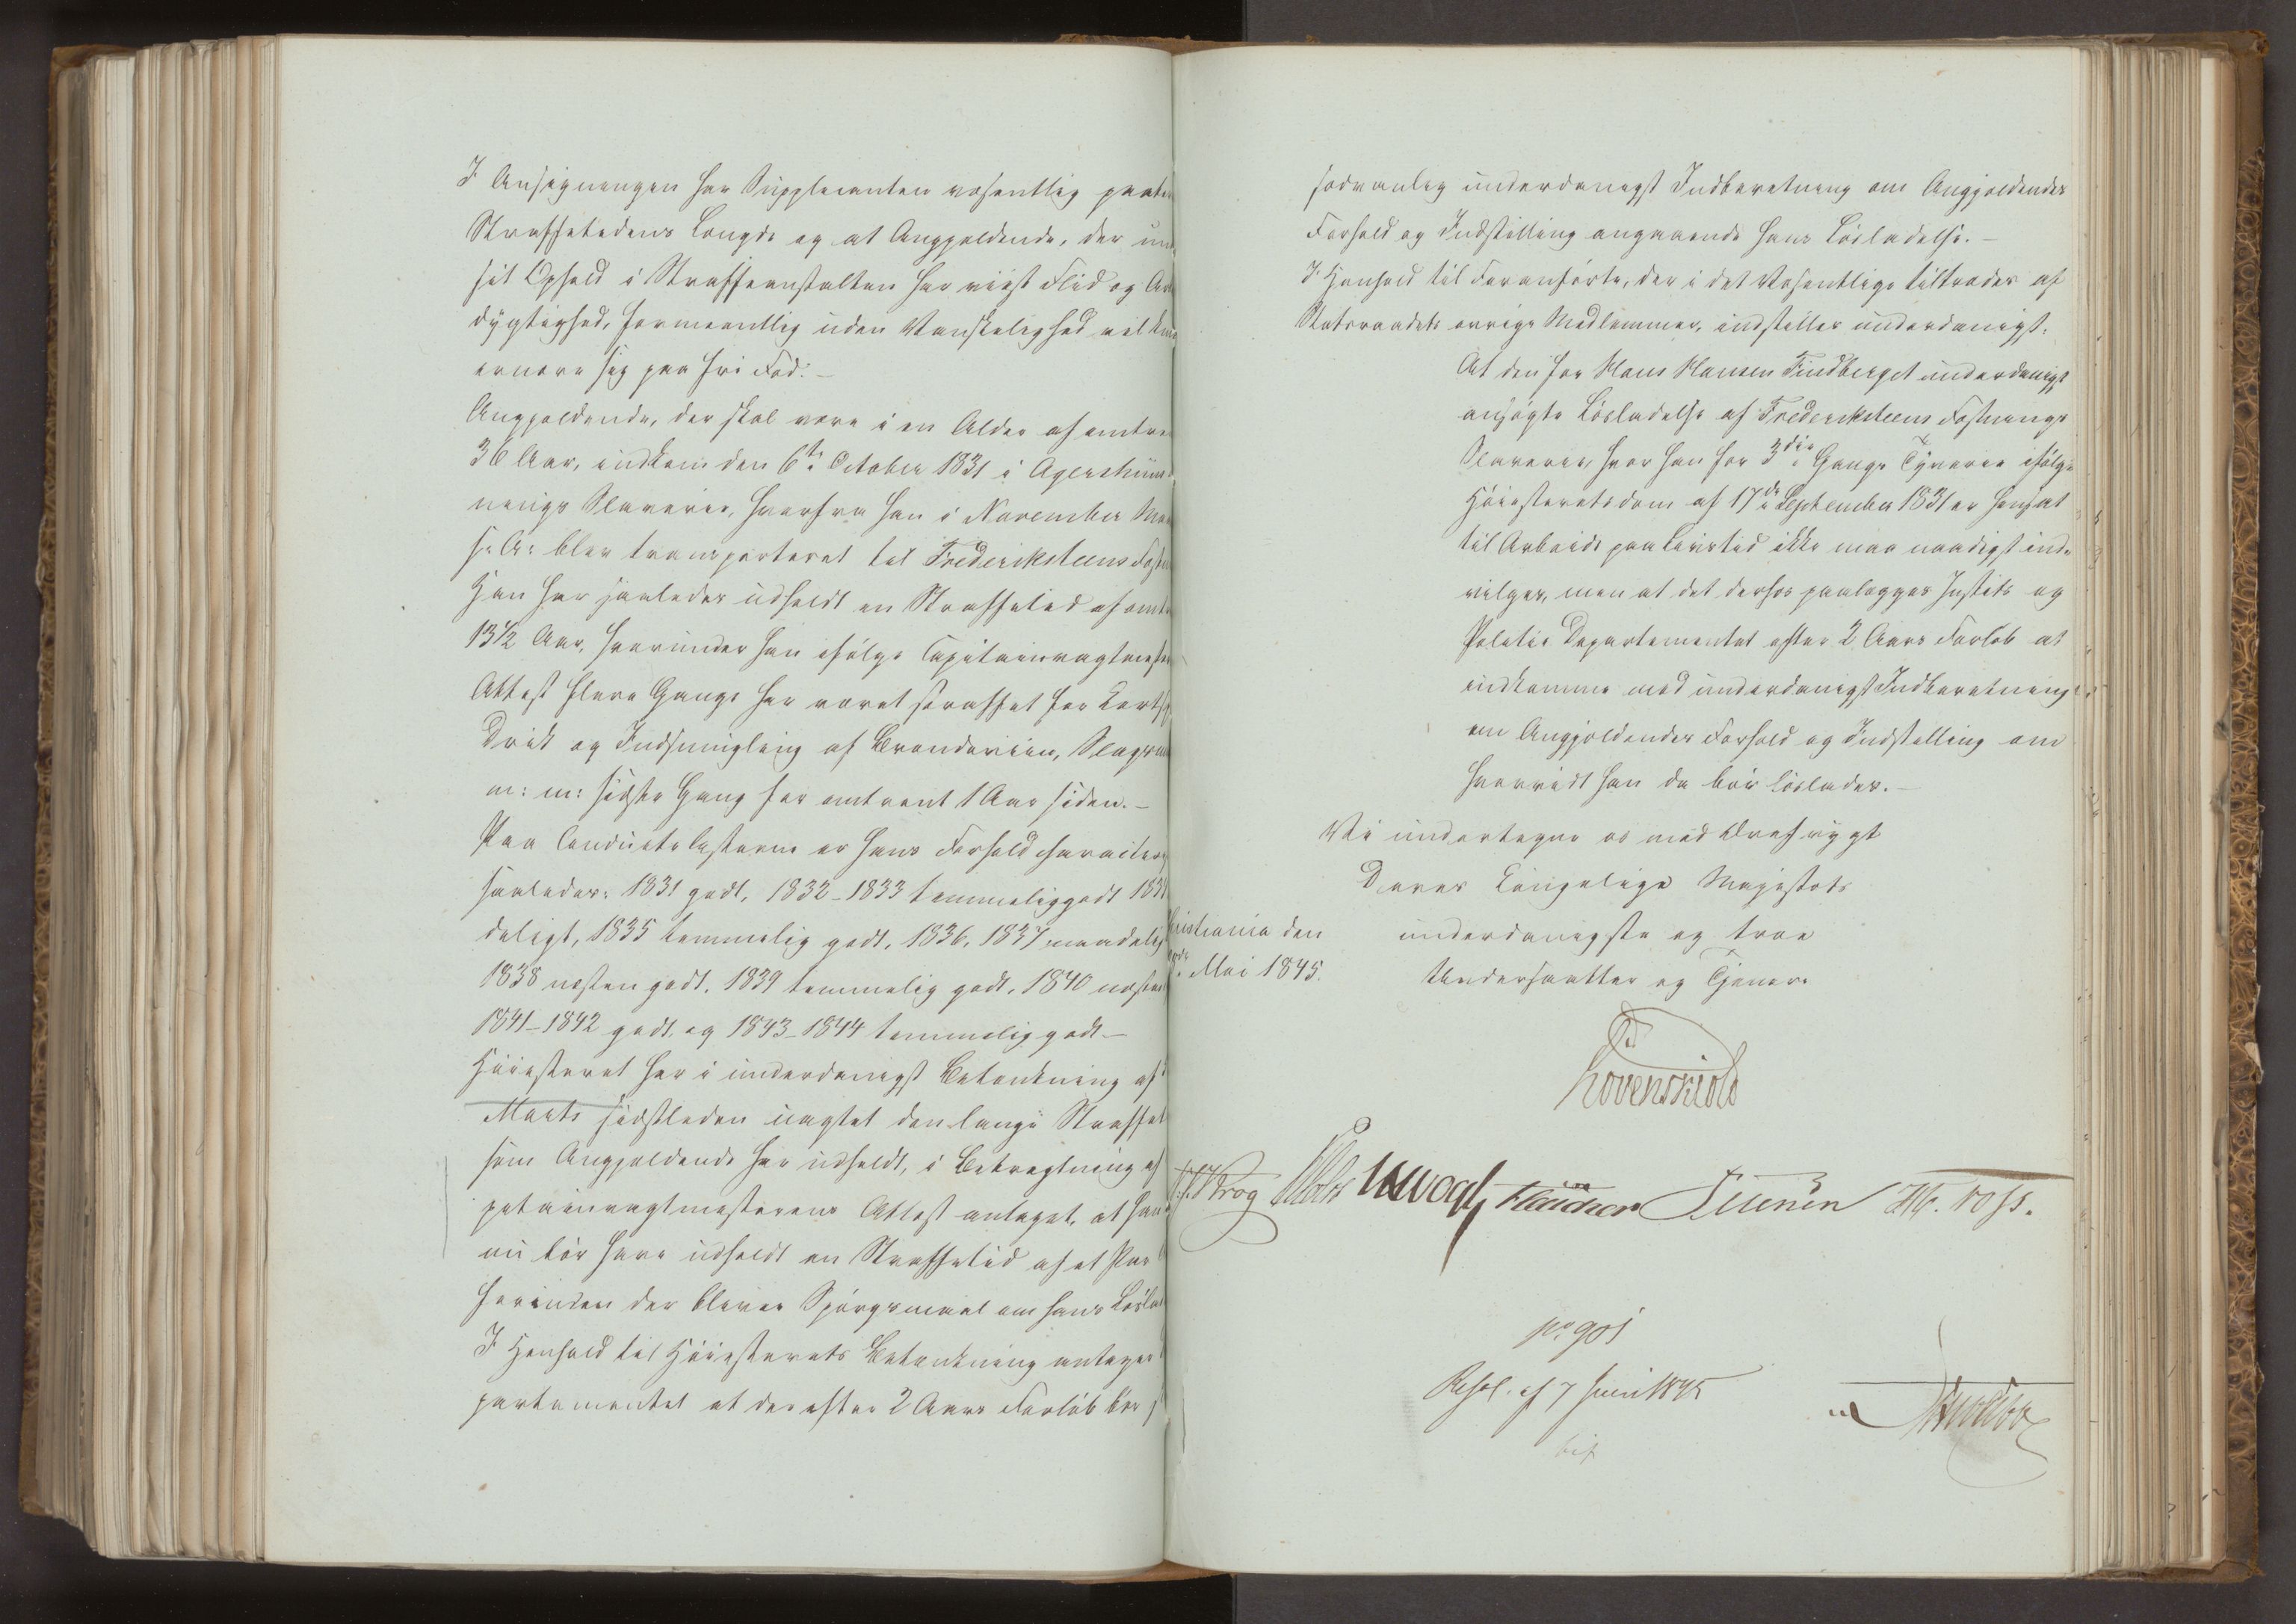 I Ansøgningen har Supplicanten væsentlig paabe
Straffetidens Længde og at Angjeldende, der und
sit Ophold i Straffeanstalten har viist Flid og Arb
dygtighed, formeentlig uden Vanskelighed vil kun
ernære sig paa fri Fod.—
Angjeldende, der skal være i en Alder af omtre
36 Aar, indkom den 6te October 1831 i Agershuus
nings Slaverie, hvorfra han i November Ma
s: A: blev transporteret til Frederiksteens Fæst
Han har saaledes udholdt en Straffetid af omt
13 1/2 Aar, hvorunder han ifølge Capitainvagtmeste
Attest flere Gange har været straffet for Kortsp
Drik og Indsmugling af Brændeviin, Slagsm
m: m: sidste Gang for omtrent 1 Aar siden.—
Paa Conduitelisterne er hans Forhold characteri
saaledes: 1831 godt, 1832-1833 temmelig godt 1834
deligt, 1835 temmelig godt, 1836, 1837 maadelig
1838 næsten godt, 1839 temmelig godt, 1840 næsten
1841-1842 godt, og 1843-1844 temmelig godt—
Høiesteret har i underdanigst Betænkning af
Marts sidstleden uagtet den lange Straffet
som Angjeldende har udholdt, i Betragtning af
pitainvagtmesterens Attest antaget, at han
nu bør have udholdt en Straffetid af et Par
forinden der bliver Spørgsmaal om hans Løslad
I Henhold til Høiesterets Betænkning antager
partementet at der efter 2 Aars Forløb bør
sædvanlig underdanigst Indberetning om Angjeldendes
Forhold og Indstilling angaaende hans Løsladelse.—
I Henhold til Foranførte, der i det Væsentlige tiltrædes af
Statsraadets øvrige Medlemmer, indstilles underdanigst:
At den for Hans Hansen Findberget underdanigst
ansøgte Løsladelse af Frederiksteens Fæstnings
Slaverie, hvor han for 3die Gang Tyverie ifølge
Høiesteretsdom af 17de September 1831 er hensat
til Arbeide paa Livstid ikke maa naadigst ind-
vilges, men at det derhos paalægges Justits og
Politie Departementet efter 2 Aars Forløb at
indkomme med underdanigst Indberetning
om Angjeldendes Forhold og Indstilling om
hvorvidt han da bør løslades.—
Vi undertegne os med Ærefrygt
Deres Kongelige Majestæts
underdanigste og troe
Undersaatter og Tjenere
ristiania den
Mai 1845.
Løvenskiold
Krog Vogt H. Foss.
No 901
Resol. af 7 Juni 1845